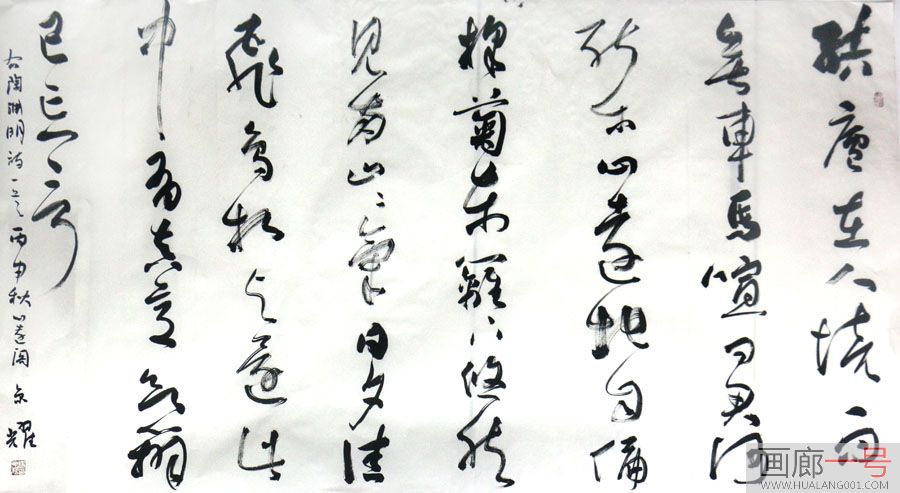 結廬在人境而
無車馬喧问君何
能尔心遠地自偏
採菊东籬下悠然
見南山〻氣日夕佳
飛鳥相与還此
中有真意欲辨
已忘言
右陶渊明诗一首 丙申秋心遠阁 京耀
画廊一号
WWW.HUALANG001.COM